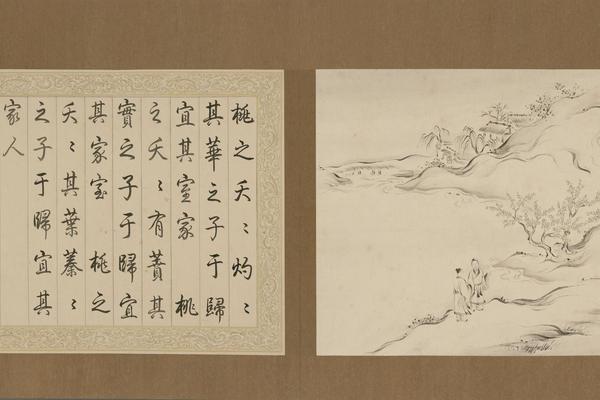 桃之夭〻灼〻
其華之子于歸
宜其室家 桃
之夭〻有蕡其
實之子于歸宜
其家室 桃之
夭〻其葉蓁〻
之子于歸宜其
家人